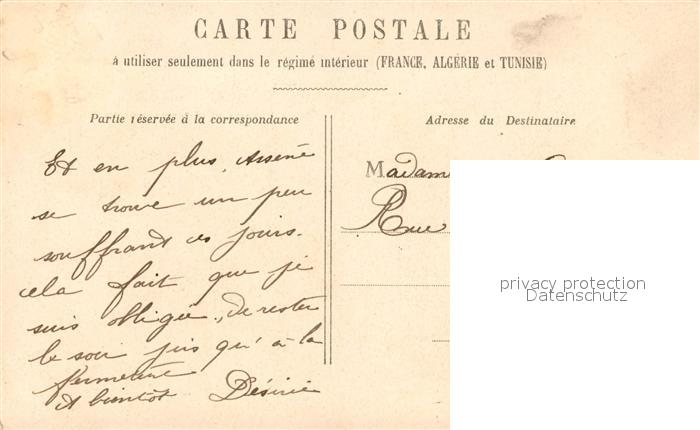 CARTE POSTALE
à utiliser seulement dans le régime intérieur (FRANCE, ALGÉRIE et TUNISIE)
Partie réservée à la correspondance
Et en plus, Arsène
se trouve un peu
souffrant ces jours.
cela fait que je
suis obligée, de rester
le soir jus qu'à la
fermeture
A bientôt Désirée
Adresse du Destinataire
Madame
Rue
privacy protection
Datenschutz